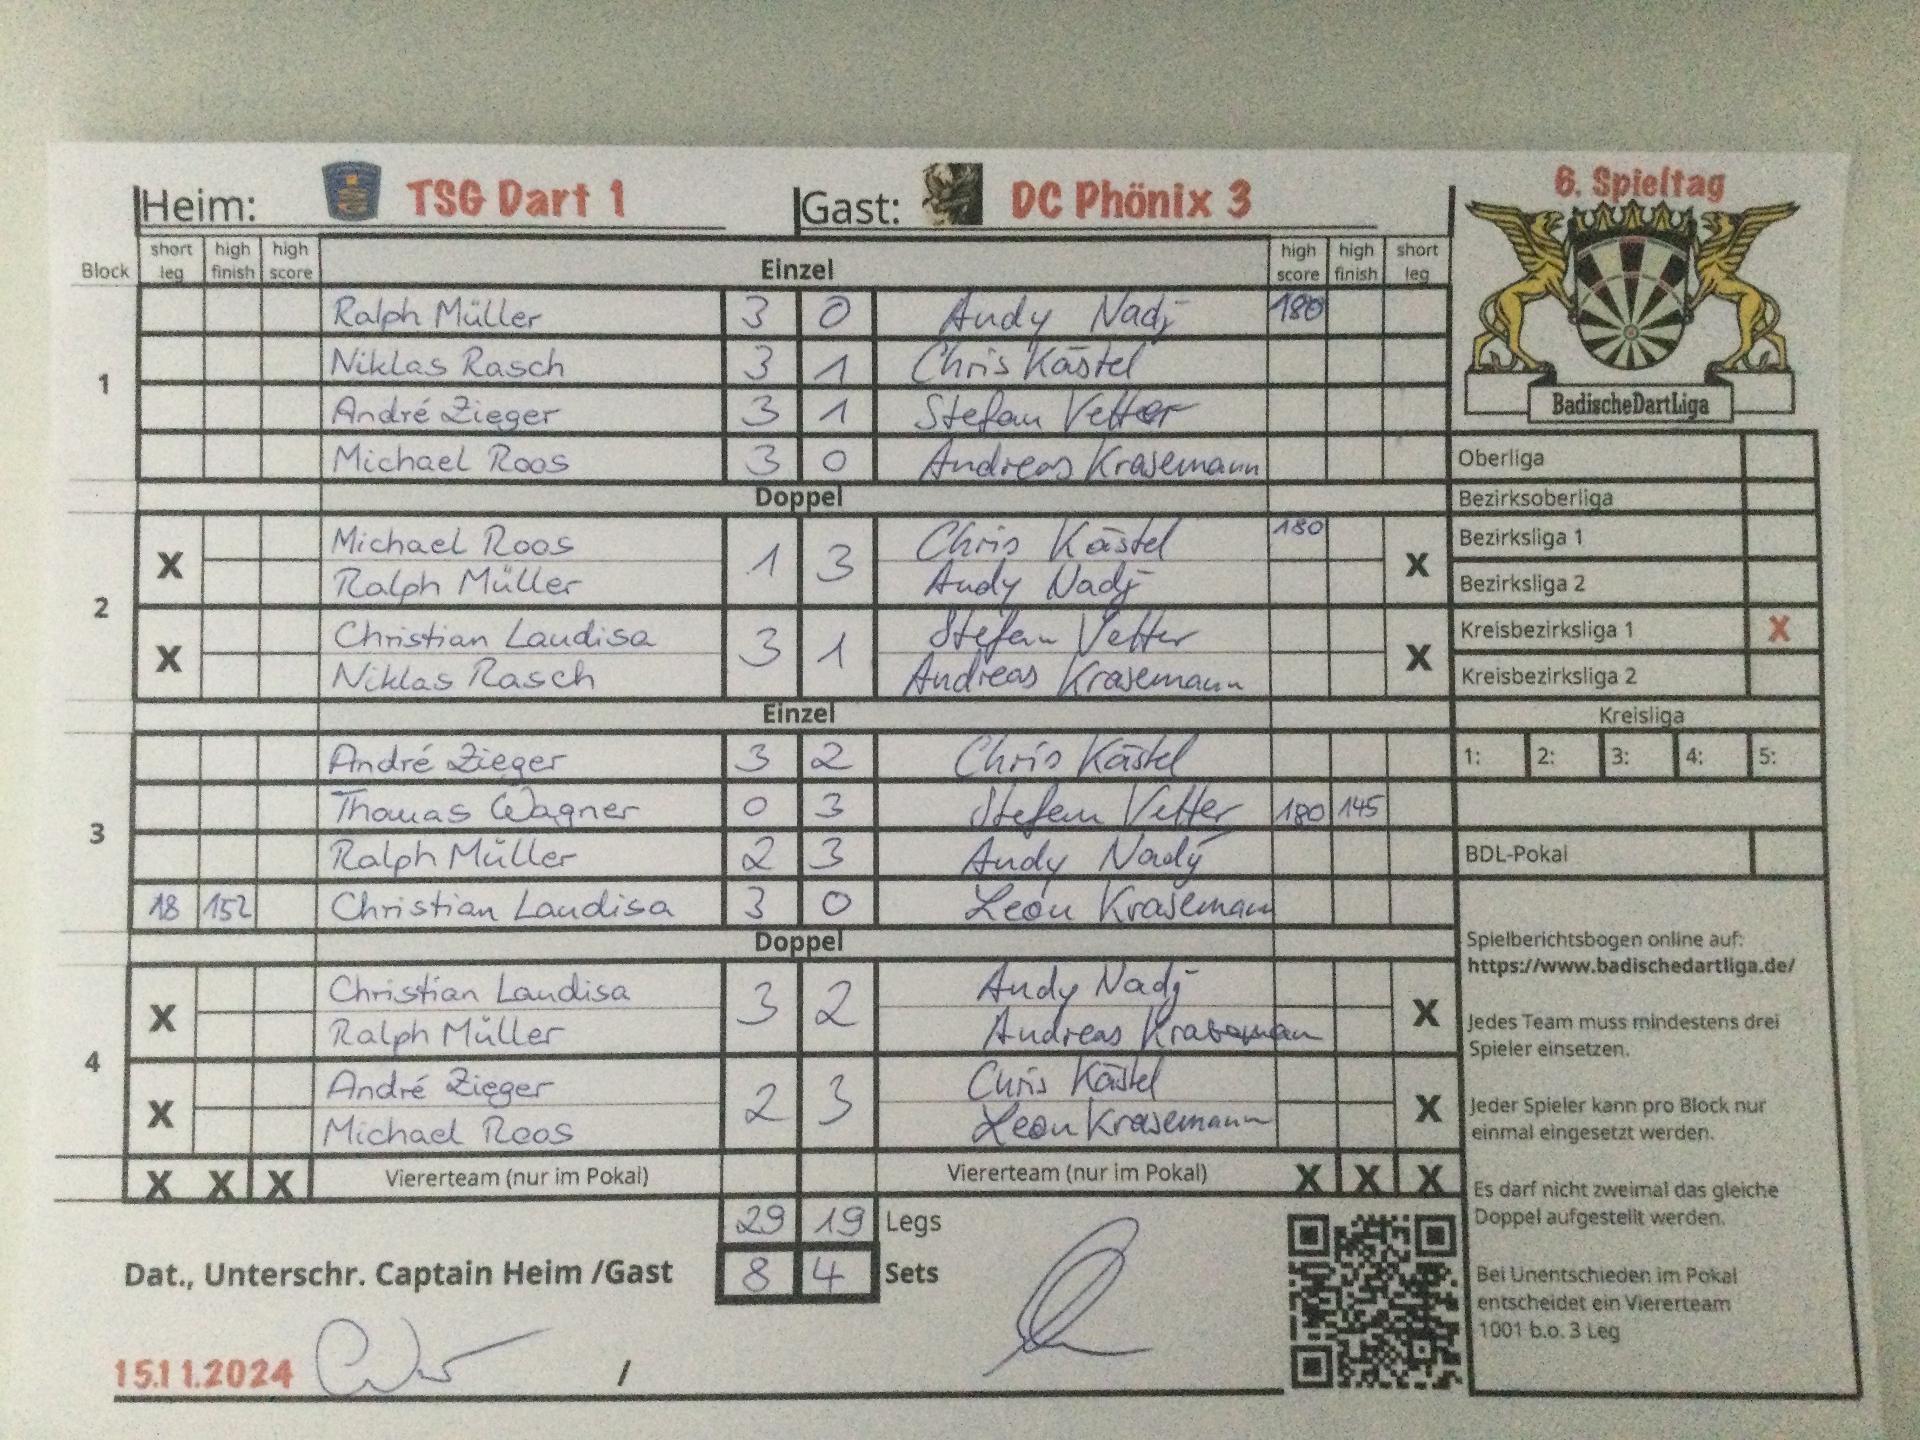 6. Spieltag
Heim: TSG Dart 1 Gast: DC Phönix 3
Block short leg high finish high score Einzel high score high finish short leg
1
Ralph Müller 3 0 Andy Nadj 180
Niklas Rasch 3 1 Chris Kästel
André Zieger 3 1 Stefan Vetter
Michael Roos 3 0 Andreas Krasemann
Doppel
2
X Michael Roos 1 3 Chris Kästel 180 X
Ralph Müller Andy Nadj
X Christian Laudisa 3 1 Stefan Vetter X
Niklas Rasch Andreas Krasemann
Einzel
3
André Zieger 3 2 Chris Kästel
Thomas Wagner 0 3 Stefan Vetter 180 145
Ralph Müller 2 3 Andy Nadj
18 152 Christian Laudisa 3 0 Leon Krasemann
Doppel
4
X Christian Laudisa 3 2 Andy Nadj X
Ralph Müller Andreas Krasemann
X André Zieger 2 3 Chris Kästel X
Michael Roos Leon Krasemann
X X X Viererteam (nur im Pokal) Viererteam (nur im Pokal) X X X
29 19 Legs
Dat., Unterschr. Captain Heim /Gast 8 4 Sets
15.11.2024 /
BadischeDartLiga
Oberliga
Bezirksoberliga
Bezirksliga 1
Bezirksliga 2
Kreisbezirksliga 1 X
Kreisbezirksliga 2
Kreisliga
1: 2: 3: 4: 5:
BDL-Pokal
Spielberichtsbogen online auf:
https://www.badischedartliga.de/
Jedes Team muss mindestens drei
Spieler einsetzen.
Jeder Spieler kann pro Block nur
einmal eingesetzt werden.
Es darf nicht zweimal das gleiche
Doppel aufgestellt werden.
Bei Unentschieden im Pokal
entscheidet ein Viererteam
1001 b.o. 3 Leg